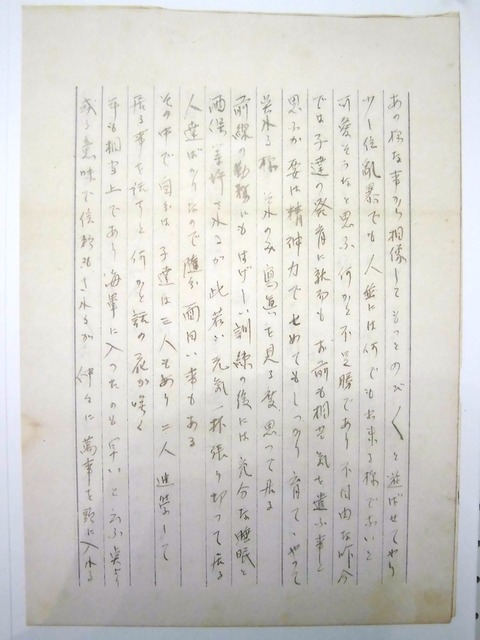 あの様な事から想像してもつとのび〱と遊ばせてやり
少し位乱暴でも人並には何でも出来る様でないと
可愛そうなと思ふ 何かと不足勝であり不自由な昨今
では子達の発育に就ても お前も相当気を遣ふ事と
思ふが 要は精神力で せめてもしつかり育てゝやつて
呉れる様 それのみ寫真を見る度思つて居る
前線の勤務にもはげしい訓練の後には充分な睡眠と
酒保 が此若い元気一杯張り切つて居る
人達ばかりなので随分面白い事もある
その中で自分は子達は三人もあり 二人 して
居る事を話すと何かと話の花が咲く
年も相当上であり海軍に入つたのも早いと云ふ点より
或る意味で信頼もされるが 仲々に萬事を頭に入れる